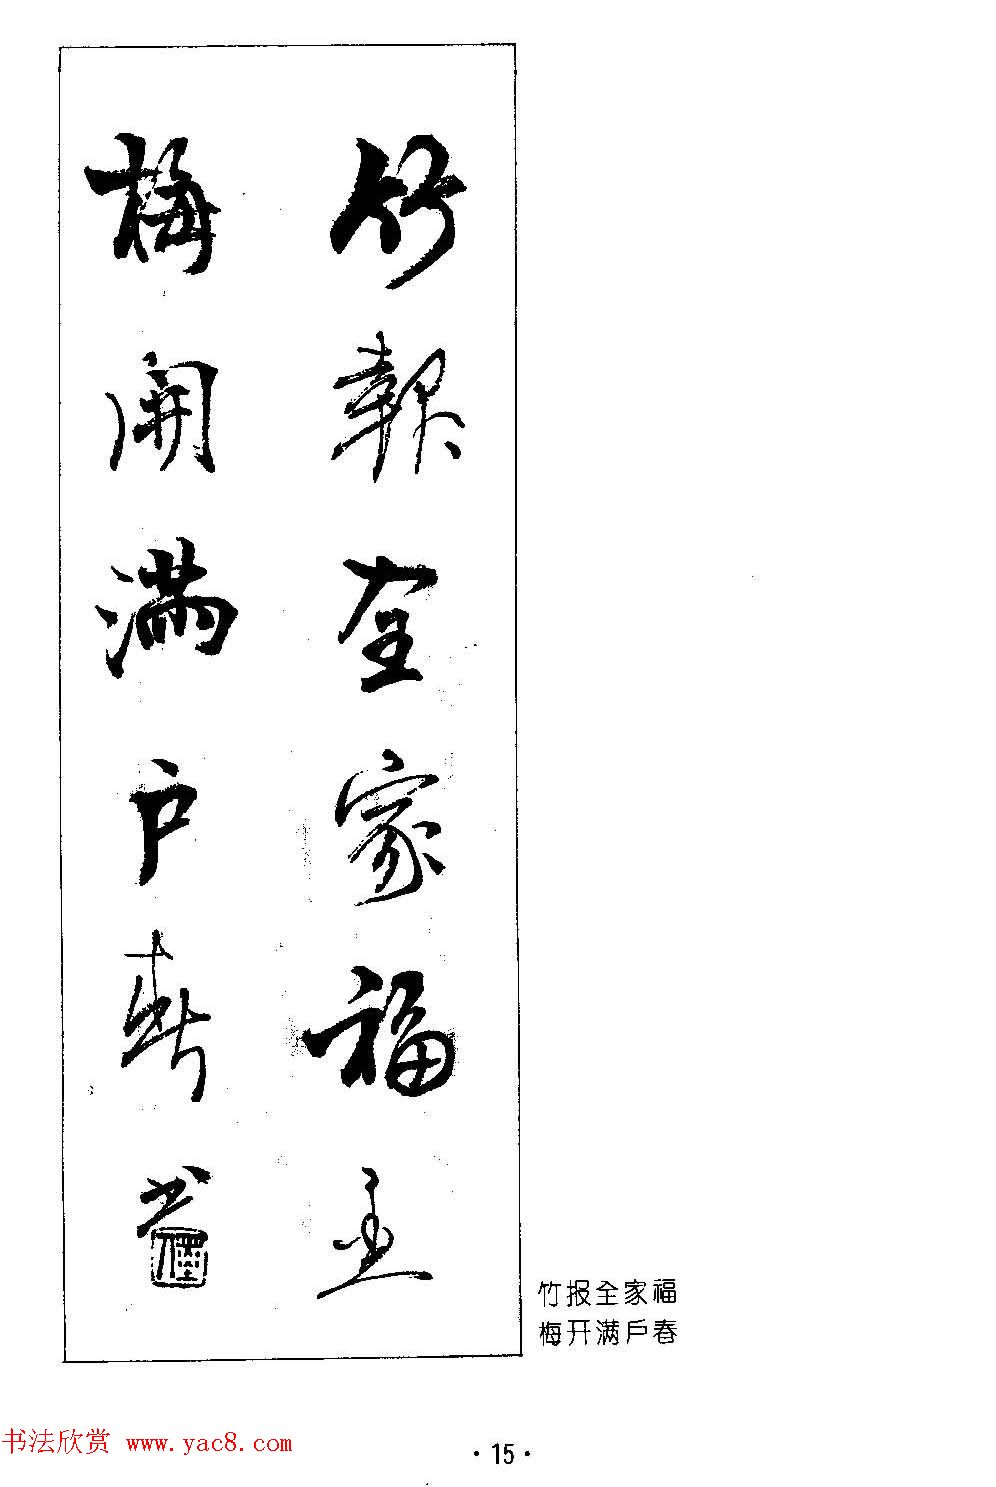 竹報全家福至
梅開满户春
书
竹报全家福
梅开满户春
书法欣赏 www.yac8.com
·15·